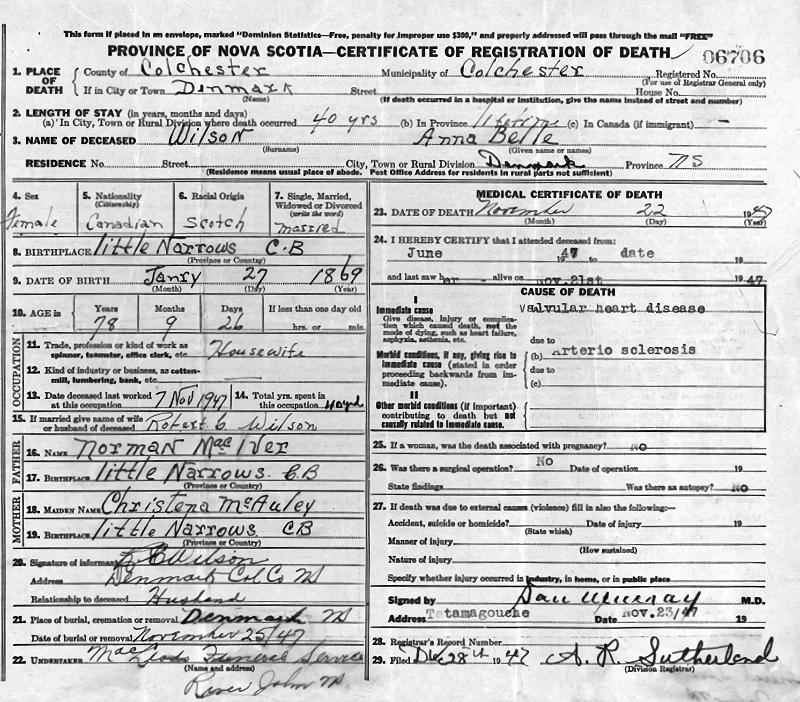 This form if placed in an envelope, marked "Dominion Statistics—Free, penalty for improper use $300," and properly addressed will pass through the mail "FREE"
PROVINCE OF NOVA SCOTIA—CERTIFICATE OF REGISTRATION OF DEATH
06706
1. PLACE OF DEATH { County of Colchester Municipality of Colchester Registered No.
(For use of Registrar General only)
If in City or Town Denmark Street House No.
(Name) (If death occurred in a hospital or institution, give the name instead of street and number)
2. LENGTH OF STAY (in years, months and days)
(a) In City, Town or Rural Division where death occurred 40 yrs (b) In Province lifetime (c) In Canada (if immigrant) —
3. NAME OF DECEASED Wilson Anna Belle
(Surname) (Given name or names)
RESIDENCE No. Street City, Town or Rural Division Denmark Province NS
(Residence means usual place of abode. Post Office Address for residents in rural parts not sufficient)
4. Sex 5. Nationality (Citizenship) 6. Racial Origin 7. Single, Married, Widowed or Divorced (write the word)
Female Canadian Scotch married
8. BIRTHPLACE little Narrows C.B
(Province or Country)
9. DATE OF BIRTH Janry 27 1869
(Month) (Day) (Year)
10. AGE in Years Months Days If less than one day old
78 9 26 hrs. or min.
OCCUPATION
11. Trade, profession or kind of work as spinner, teamster, office clerk, etc. Housewife
12. Kind of industry or business, as cotton-mill, lumbering, bank, etc. —
13. Date deceased last worked at this occupation 7 Nov 1947 14. Total yrs. spent in this occupation
15. If married give name of wife or husband of deceased Robert C. Wilson
FATHER
16. Name Norman MacIver
17. Birthplace little Narrows C.B
(Province or Country)
MOTHER
18. Maiden Name Christena McAuley
19. Birthplace little Narrows CB
(Province or Country)
20. Signature of informant R C Wilson
Address Denmark Col Co NS
Relationship to deceased Husband
21. Place of burial, cremation or removal Denmark NS
Date of burial or removal November 25/47
22. UNDERTAKER MacLeods Funeral Service
(Name and address)
River John NS
MEDICAL CERTIFICATE OF DEATH
23. DATE OF DEATH November 22 1947
(Month) (Day) (Year)
24. I HEREBY CERTIFY that I attended deceased from:
June 1947 to date 19
and last saw her alive on Nov. 21st 1947
CAUSE OF DEATH
I
Immediate cause valvular heart disease
Give disease, injury or complication which caused death, not the mode of dying, such as heart failure, asphyxia, asthenia, etc.
due to
Morbid conditions, if any, giving rise to immediate cause (stated in order proceeding backwards from immediate cause). (b) Arterio sclerosis
due to
(c)
II
Other morbid conditions (if important) contributing to death but not causally related to immediate cause.
25. If a woman, was the death associated with pregnancy? NO
26. Was there a surgical operation? No Date of operation 19
State findings Was there an autopsy? No
27. If death was due to external causes (violence) fill in also the following:—
Accident, suicide or homicide? Date of injury 19
(State which)
Manner of injury
(How sustained)
Nature of injury
Specify whether injury occurred in industry, in home, or in public place
Signed by Dan Murray M.D.
Address Tatamagouche Date Nov.23/47 19
28. Registrar's Record Number
29. Filed Dec 28th 1947 A. R. Sutherland
(Division Registrar)